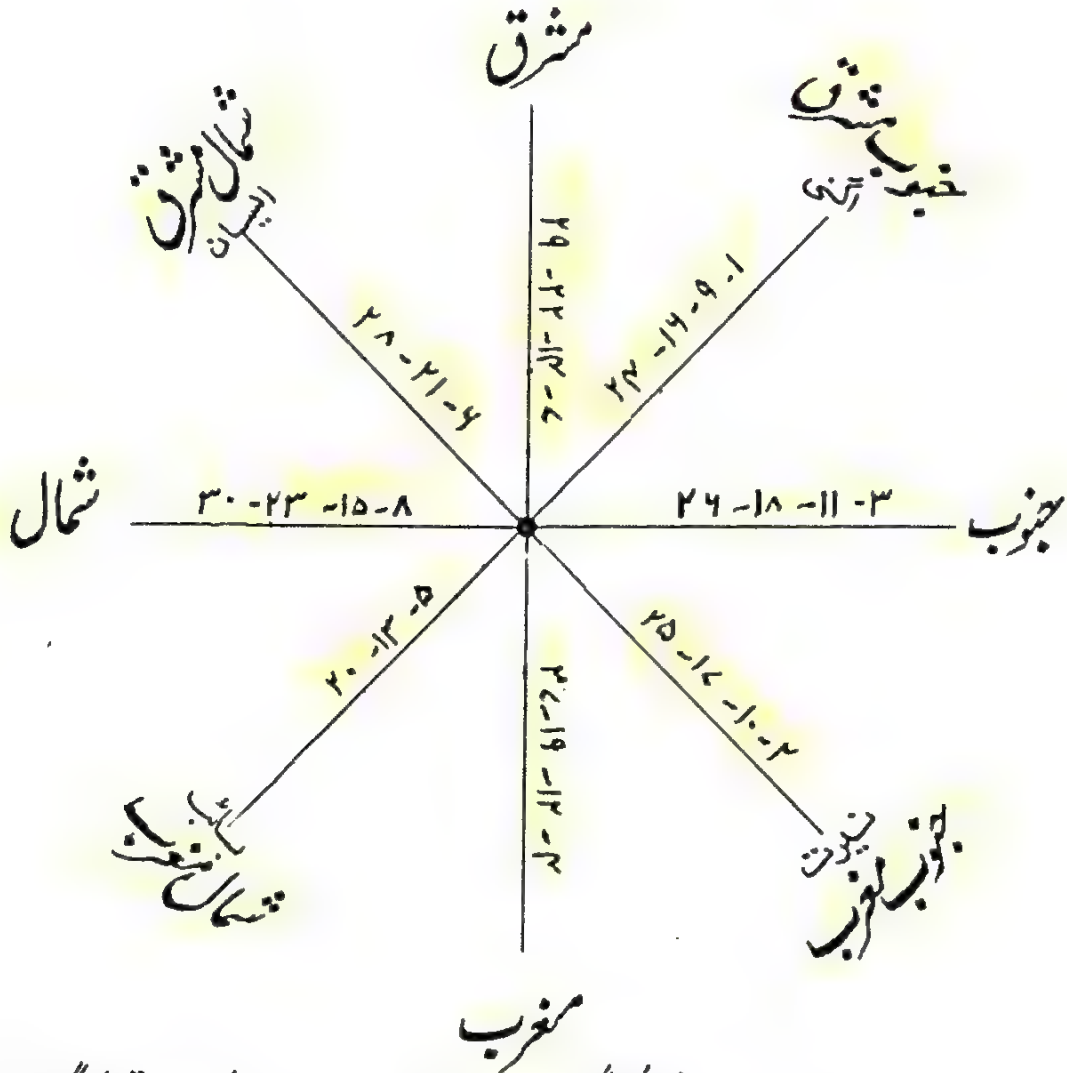 مشرق
جنوب مشرق
اگنی
شمال مشرق
ایسان
۲۹-۲۲-۱۴-۷
۲۴-۱۶-۹-۱
۲۸-۲۱-۶
شمال
۳۰-۲۳-۱۵-۸
۲۶-۱۸-۱۱-۳
جنوب
۲۰-۱۳-۵
۲۷-۱۹-۱۲-۴
۲۵-۱۷-۱۰-۲
شمال مغرب
جنوب مغرب
مغرب